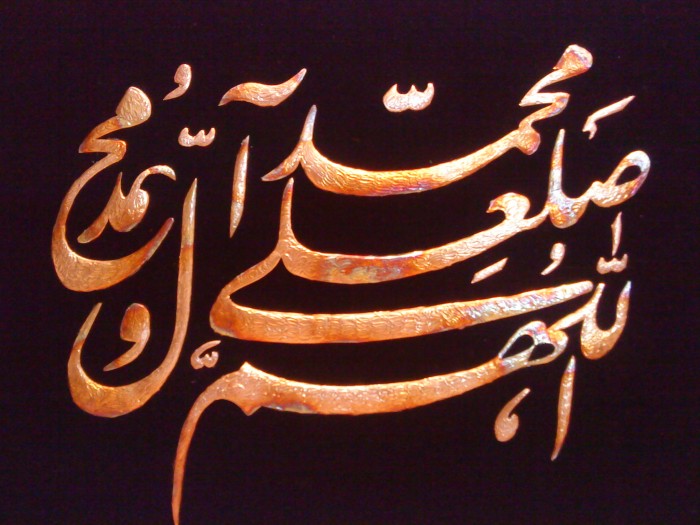 اللّهمّ صلّ علی محمّد و آل محمّد